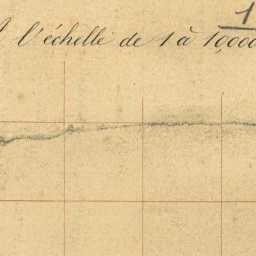 1
l'échelle de 1 à 10,000